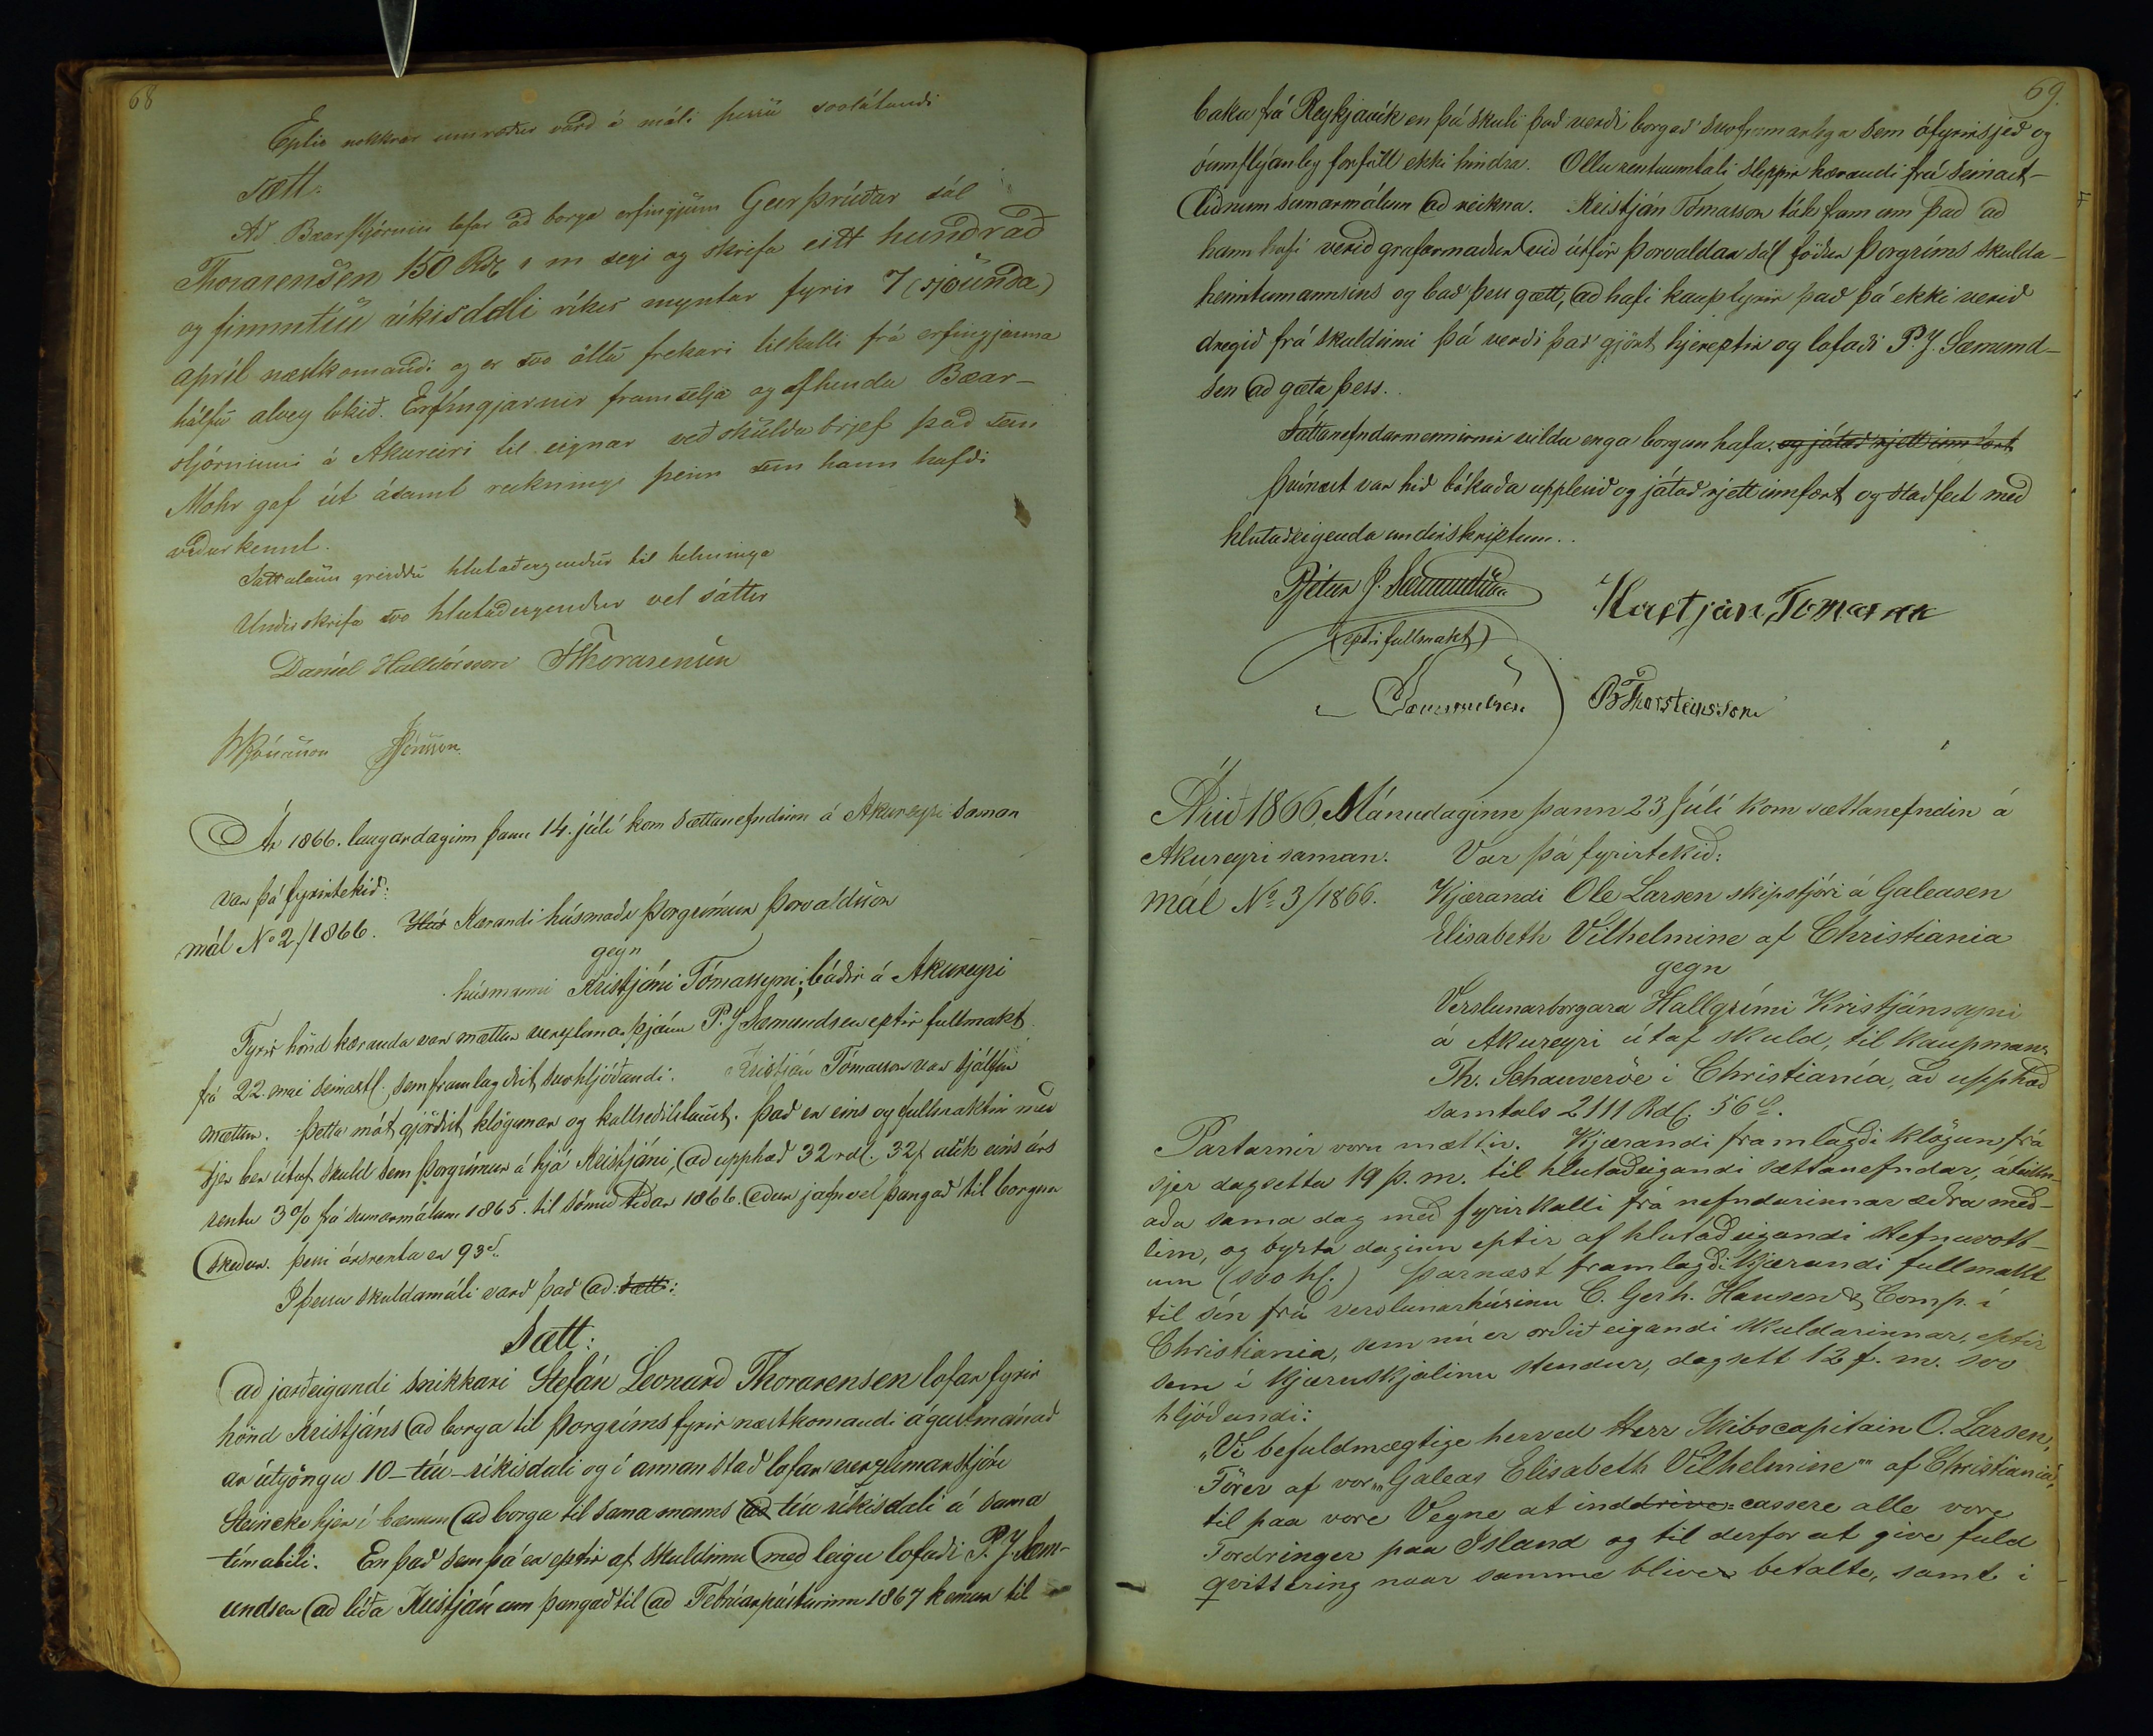 68
Eptir nokkrar umrædur vard á máli þessu svolátandi
sætt.
Að Bæarstjórnin lofar að borga erfingjum Geirþrúdar sál
Thorarensen 150 Rdl s m segi og skrifa eitt hundrað
og fimmtíu ríkisdali ríkis myntar fyrir 7 (sjöunda)
apríl næstkomandi og er svo öllu frekari tilkalli frá erfingjanna
hálfu alveg lokið. Erfingjarnir framselja og afhenda Bæar-
stjórninni á Akureiri til eignar veðskuldabrjef það sem
Mohr gaf út ásamt reikningi þeim sem hann hafði
viðurkennt.
Sáttalaun greiddu hlutaðeigendur til helminga
Undirskrifa svo hlutaðeigendur vel sáttir
Daníel Halldórsson SThorarensen
JJónsson
Ár 1866. laugardaginn þann 14. júlí kom sættanefndin á Akureyri saman
var þá fyrirtekið:
mál No 2/1866. Hús Kærandi húsmaðr Þorgrímur Þorvaldsson
gegn
húsmanni Kristjáni Tómassyni; báðir á Akureyri
Fyrir hönd kæranda var mættur verzlunarþjónn P. J Sæmundsen eptir fullmakt
frá 22. mai seinastl. sem framlagðist svohljóðandi. Kristján Tómasson var sjálfur
mættur. Þetta mót gjörðist klögunar og kallseðilslaust. Það er eins og fullmaktin með
sjer ber útaf skuld sem Þorgrímur á hjá Kristjáni, að upphæð 32 rdl. 32 s auk eins árs
rentu 3% frá sumarmálum 1865. til sömu tíðar 1866. eður jafnvel þangað til borgun
skeður. þessi ársrenta er 93 s.
Í þessu skuldamáli varð það að: sætt:
Sætt:
að jarðeigandi snikkari Stefán Leonard Thorarensen lofar fyrir
hönd Kristjáns að borga til Þorgríms fyrir næstkomandi ágústmánað
ar útgöngu 10 - tíu - ríkisdali og í annan stað lofar verzlunarstjóri
Steincke hjer í bænum að borga til sama manns að tíu ríkisdali á sama
tímabili. En það sem þá er eptir af skuldinni með leigu lofaði P. J. Sæm-
undsen að líða Kristján um þangað til að Febrúarpósturinn 1867 kemur til
69.
baka frá Reykjavík en þá skuli það verði borgað svoframarlega sem ófyrirsjeð og
óumflýanleg forföll ekki hindra. Ollu rentuumtali sleppir kærandi frá seinast-
liðnum sumarmálum að reikna. Kristján Tómasson tók fram um það að
hann hafi verið grafarmaður við útför Þorvaldar sál föður Þorgríms skulda-
heimtumannsins og bað þess gætt, að hafi kaup fyrir það þá ekki verið
dregið frá skuldinni þá verði það gjört hjereptir og lofaði P. J. Sæmund-
sen að gæta þess.
Sáttanefndarmennirnir vildu enga borgun hafa. og játað rjett inn fært
Þvínæst var hið bókaða upplesið og játað rjett innfært og staðfest með
hlutaðeigenda undirskriptum.
Pjetur J. Sæmundsen Kristján Tomasson
(eptir fullmakt)
BThorsteinsson
Árið 1866, Mánudaginn þann 23 Júlí kom sættanefndin á
Akureyri saman. Var þá fyrirtekið:
mál No 3/1866. Kjærandi Ole Larsen skipstjóri á Galeasen
Elisabeth Vilhelmine af Christiania
gegn
Verslunarborgara Hallgrími Kristjánssyni
á Akureyri útaf skuld, til kaupmans
Th. Schauveröe i Christianía, að upphæð
samtals 2111 Rdl. 56 s.
Partarnir voru mættir. Kjærandi framlagði klögun frá
sjer dagsetta 19 þ. m. til hlutaðeigandi sættanefndar, áteikn-
aða sama dag með fyrirkalli frá nefndarinnar æðra með-
lim, og byrta daginn eptir af hlutaðeigandi stefnuvott-
um (svo hl.) Þarnæst framlagði kjærandi fullmakt
til sín frá verslunarhúsinu C. Gerh. Hansen & Comp. í
Christiania, sem nú er orðið eigandi skuldarinnar, eptir
sem í kjæruskjalinu stendur, dagsett 12 f. m. svo
hljóðandi:
„Vi befuldmægtige herved Herr Skibscapitain O. Larsen,
Förer af vor „„Galeas Elisabeth Vilhelmine"" af Christiania,
til paa vore Vegne at inddrive: cassere alle vore
Fordringer paa Island og til derfor at give fuld
qvittering naar samme bliver betalte, samt i